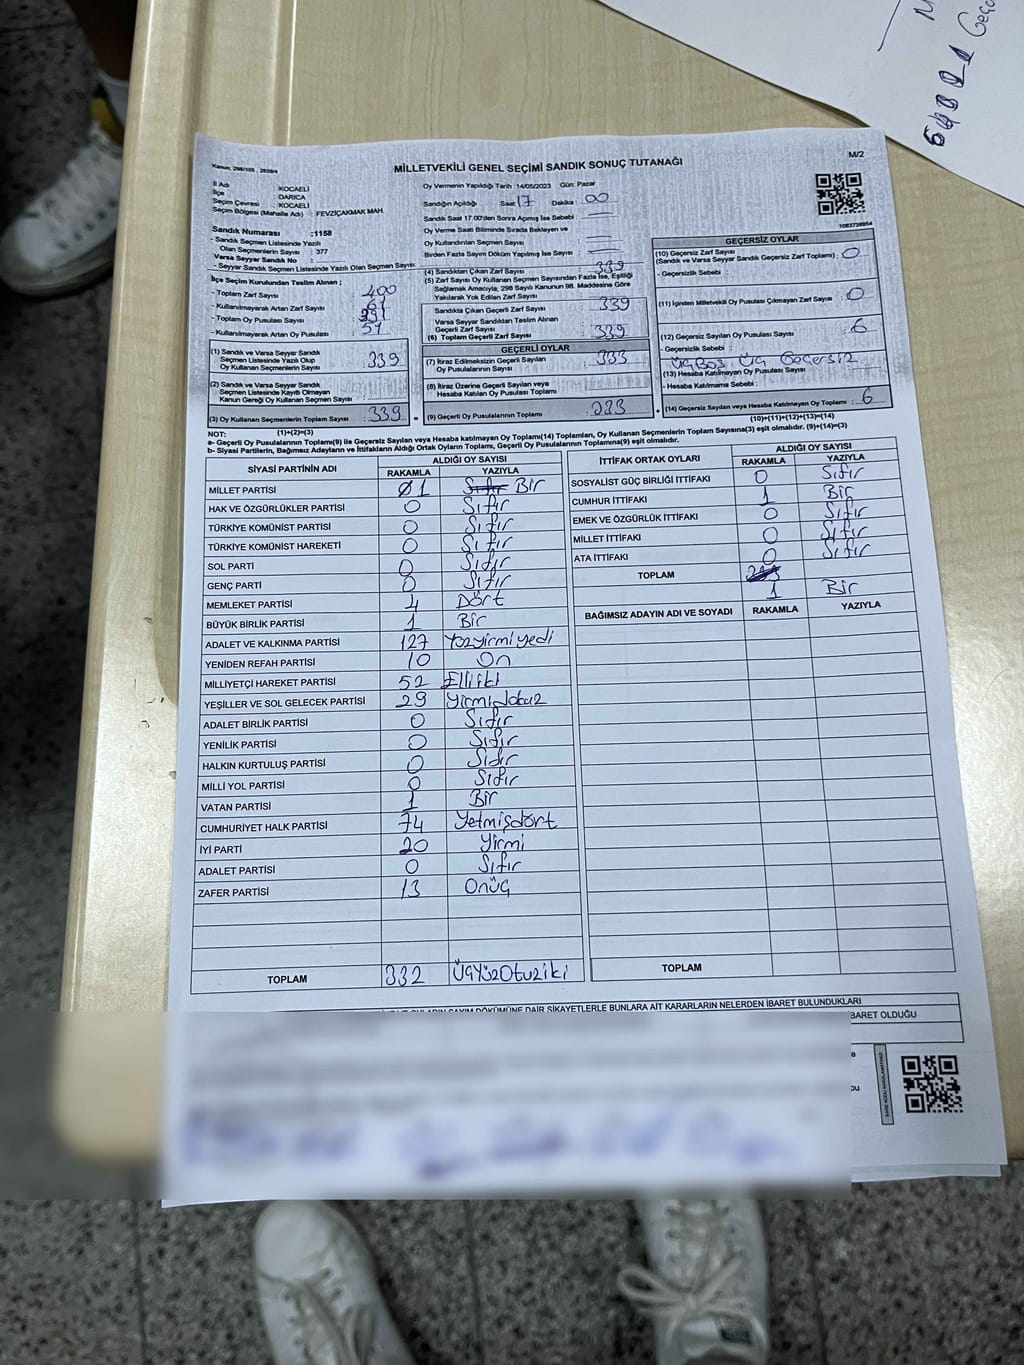 Kanun: 298/105 , 2839/4
MİLLETVEKİLİ GENEL SEÇİMİ SANDIK SONUÇ TUTANAĞI
M/2
İl Adı : KOCAELİ
İlçe : DARICA
Seçim Çevresi : KOCAELİ
Seçim Bölgesi (Mahalle Adı) : FEVZİÇAKMAK MAH.
Sandık Numarası :1158
- Sandık Seçmen Listesinde Yazılı
Olan Seçmenlerin Sayısı : 377
Varsa Seyyar Sandık No :
- Seyyar Sandık Seçmen Listesinde Yazılı Olan Seçmen Sayısı:
Oy Vermenin Yapıldığı Tarih :14/05/2023 Gün: Pazar
Sandığın Açıldığı Saat: 17 Dakika : 00
Sandık Saat 17:00'den Sonra Açılmış İse Sebebi :
Oy Verme Saati Bitiminde Sırada Bekleyen ve
Oy Kullandırılan Seçmen Sayısı :
Birden Fazla Sayım Döküm Yapılmış İse Sayısı :
1083738954
İlçe Seçim Kurulundan Teslim Alınan ;
- Toplam Zarf Sayısı : 400
- Kullanılmayarak Artan Zarf Sayısı : 61
- Toplam Oy Pusulası Sayısı :
- Kullanılmayarak Artan Oy Pusulası :
(1) Sandık ve Varsa Seyyar Sandık
Seçmen Listesinde Yazılı Olup
Oy Kullanan Seçmenlerin Sayısı : 339
(2) Sandık ve Varsa Seyyar Sandık
Seçmen Listesinde Kayıtlı Olmayan
Kanun Gereği Oy Kullanan Seçmen Sayısı :
(3) Oy Kullanan Seçmenlerin Toplam Sayısı : 339
(1)+(2)=(3)
(4) Sandıktan Çıkan Zarf Sayısı : 339
(5) Zarf Sayısı Oy Kullanan Seçmen Sayısından Fazla İse, Eşitliği
Sağlamak Amacıyla; 298 Sayılı Kanunun 98. Maddesine Göre
Yakılarak Yok Edilen Zarf Sayısı :
Sandıkta Çıkan Geçerli Zarf Sayısı : 339
Varsa Seyyar Sandıktan Teslim Alınan
Geçerli Zarf Sayısı :
(6) Toplam Geçerli Zarf Sayısı : 339
GEÇERLİ OYLAR
(7) İtiraz Edilmeksizin Geçerli Sayılan
Oy Pusulalarının Sayısı : 333
(8) İtiraz Üzerine Geçerli Sayılan veya
Hesaba Katılan Oy Pusulası Toplamı :
(9) Geçerli Oy Pusulalarının Toplamı :
GEÇERSİZ OYLAR
(10) Geçersiz Zarf Sayısı
(Sandık ve Varsa Seyyar Sandık Geçersiz Zarf Toplamı) : 0
- Geçersizlik Sebebi :
(11) İçinden Milletvekili Oy Pusulası Çıkmayan Zarf Sayısı : 0
(12) Geçersiz Sayılan Oy Pusulası Sayısı : 6
- Geçersizlik Sebebi :
üç Boş üç Geçersiz
(13) Hesaba Katılmayan Oy Pusulası Sayısı :
- Hesaba Katılmama Sebebi :
(14) Geçersiz Sayılan veya Hesaba Katılmayan Oy Toplamı : 6
(10)+(11)+(12)+(13)=(14)
NOT:
a- Geçerli Oy Pusulalarının Toplamı(9) ile Geçersiz Sayılan veya Hesaba katılmayan Oy Toplamı(14) Toplamları, Oy Kullanan Seçmenlerin Toplam Sayısına(3) eşit olmalıdır. (9)+(14)=(3)
b- Siyasi Partilerin, Bağımsız Adayların ve İttifakların Aldığı Ortak Oyların Toplamı, Geçerli Oy Pusulalarının Toplamına(9) eşit olmalıdır.
SİYASİ PARTİNİN ADI ALDIĞI OY SAYISI
RAKAMLA YAZIYLA
MİLLET PARTİSİ 01 Sıfır Bir
HAK VE ÖZGÜRLÜKLER PARTİSİ 0 Sıfır
TÜRKİYE KOMÜNİST PARTİSİ 0 Sıfır
TÜRKİYE KOMÜNİST HAREKETİ 0 Sıfır
SOL PARTİ 0 Sıfır
GENÇ PARTİ 0 Sıfır
MEMLEKET PARTİSİ 4 Dört
BÜYÜK BİRLİK PARTİSİ 1 Bir
ADALET VE KALKINMA PARTİSİ 127 Yüzyirmiyedi
YENİDEN REFAH PARTİSİ 10 On
MİLLİYETÇİ HAREKET PARTİSİ 52 Elliiki
YEŞİLLER VE SOL GELECEK PARTİSİ 29 yirmidokuz
ADALET BİRLİK PARTİSİ 0 Sıfır
YENİLİK PARTİSİ 0 Sıfır
HALKIN KURTULUŞ PARTİSİ 0 Sıfır
MİLLİ YOL PARTİSİ 0 Sıfır
VATAN PARTİSİ 1 Bir
CUMHURİYET HALK PARTİSİ 74 Yetmişdört
İYİ PARTİ 20 Yirmi
ADALET PARTİSİ 0 Sıfır
ZAFER PARTİSİ 13 Onüç
TOPLAM 332 ÜçYüzOtuziki
İTTİFAK ORTAK OYLARI ALDIĞI OY SAYISI
RAKAMLA YAZIYLA
SOSYALİST GÜÇ BİRLİĞİ İTTİFAKI 0 Sıfır
CUMHUR İTTİFAKI 1 Bir
EMEK VE ÖZGÜRLÜK İTTİFAKI 0 Sıfır
MİLLET İTTİFAKI 0 Sıfır
ATA İTTİFAKI 0 Sıfır
TOPLAM
1 Bir
BAĞIMSIZ ADAYIN ADI VE SOYADI RAKAMLA YAZIYLA
TOPLAM
DÖKÜMÜNE DAİR ŞİKAYETLERLE BUNLARA AİT KARARLARIN NELERDEN İBARET BULUNDUKLARI
BARET OLDUĞU